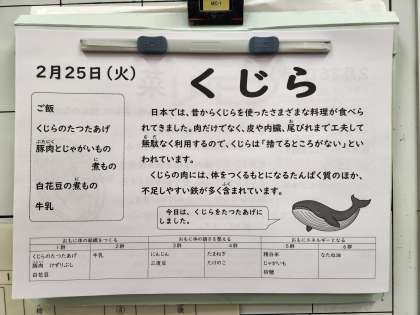 MC-1
2月25日（火）
くじら
ご飯
くじらのたつたあげ
豚肉とじゃがいもの
煮もの
白花豆の煮もの
牛乳
日本では、昔からくじらを使ったさまざまな料理が食べら
れてきました。肉だけでなく、皮や内臓、尾びれまで工夫して
無駄なく利用するので、くじらは「捨てるところがない」とい
われています。
くじらの肉には、体をつくるもとになるたんぱく質のほか、
不足しやすい鉄が多く含まれています。
今日は、くじらをたつたあげに
しました。
おもに体の組織をつくる おもに体の調子を整える おもにエネルギーとなる
1群 2群 3群 4群 5群 6群
くじらのたつたあげ 牛乳 にんじん たまねぎ 精白米 なたね油
豚肉 けずりぶし 三度豆 たけのこ じゃがいも
白花豆 砂糖